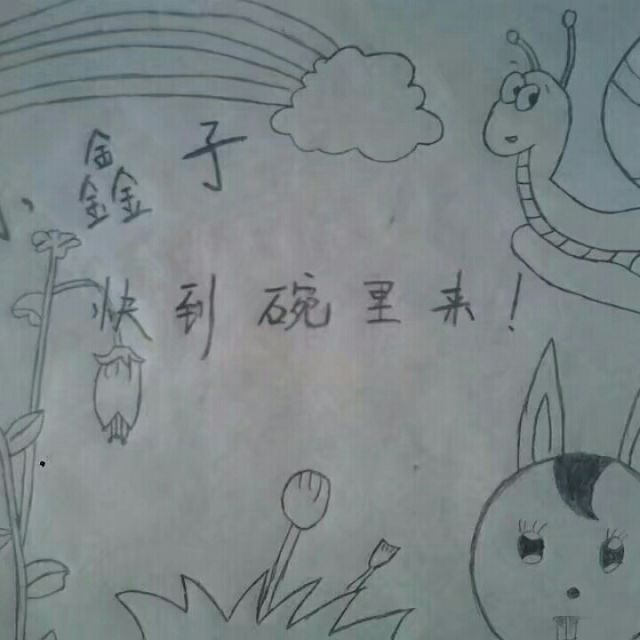 鑫子
快到碗里来！